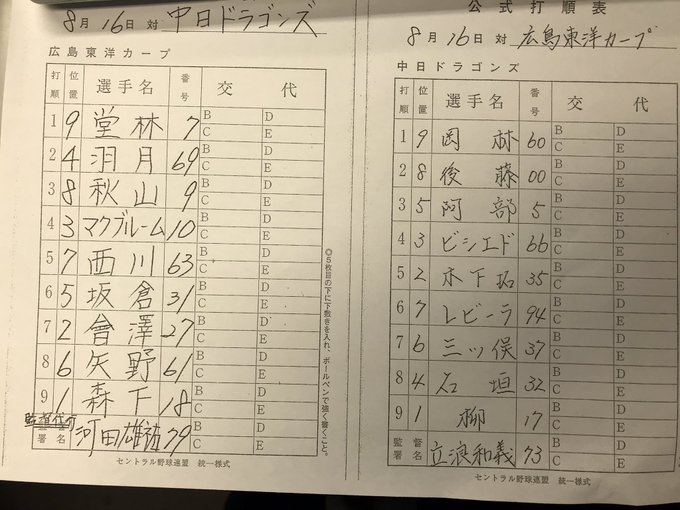 8月16日 対 中日ドラゴンズ
広島東洋カープ
打順 位置 選手名 番号 交代
1 9 堂林 7 B D C E
2 4 羽月 69 B D C E
3 8 秋山 9 B D C E
4 3 マクブルーム 10 B D C E
5 7 西川 63 B D C E
6 5 坂倉 31 B D C E
7 2 會澤 27 B D C E
8 6 矢野 61 B D C E
9 1 森下 18 B D C E
監督代行
署名 河田雄祐 79 B D C E
セントラル野球連盟 統一様式
◎5枚目の下に下敷きを入れ、ボールペンで強く書くこと。
公式打順表
8月16日 対 広島東洋カープ
中日ドラゴンズ
打順 位置 選手名 番号 交代
1 9 岡林 60 B D C E
2 8 後藤 00 B D C E
3 5 阿部 5 B D C E
4 3 ビシエド 66 B D C E
5 2 木下拓 35 B D C E
6 7 レビーラ 94 B D C E
7 6 三ッ俣 37 B D C E
8 4 石垣 32 B D C E
9 1 柳 17 B D C E
監督署名 立浪和義 73 B D C E
セントラル野球連盟 統一様式